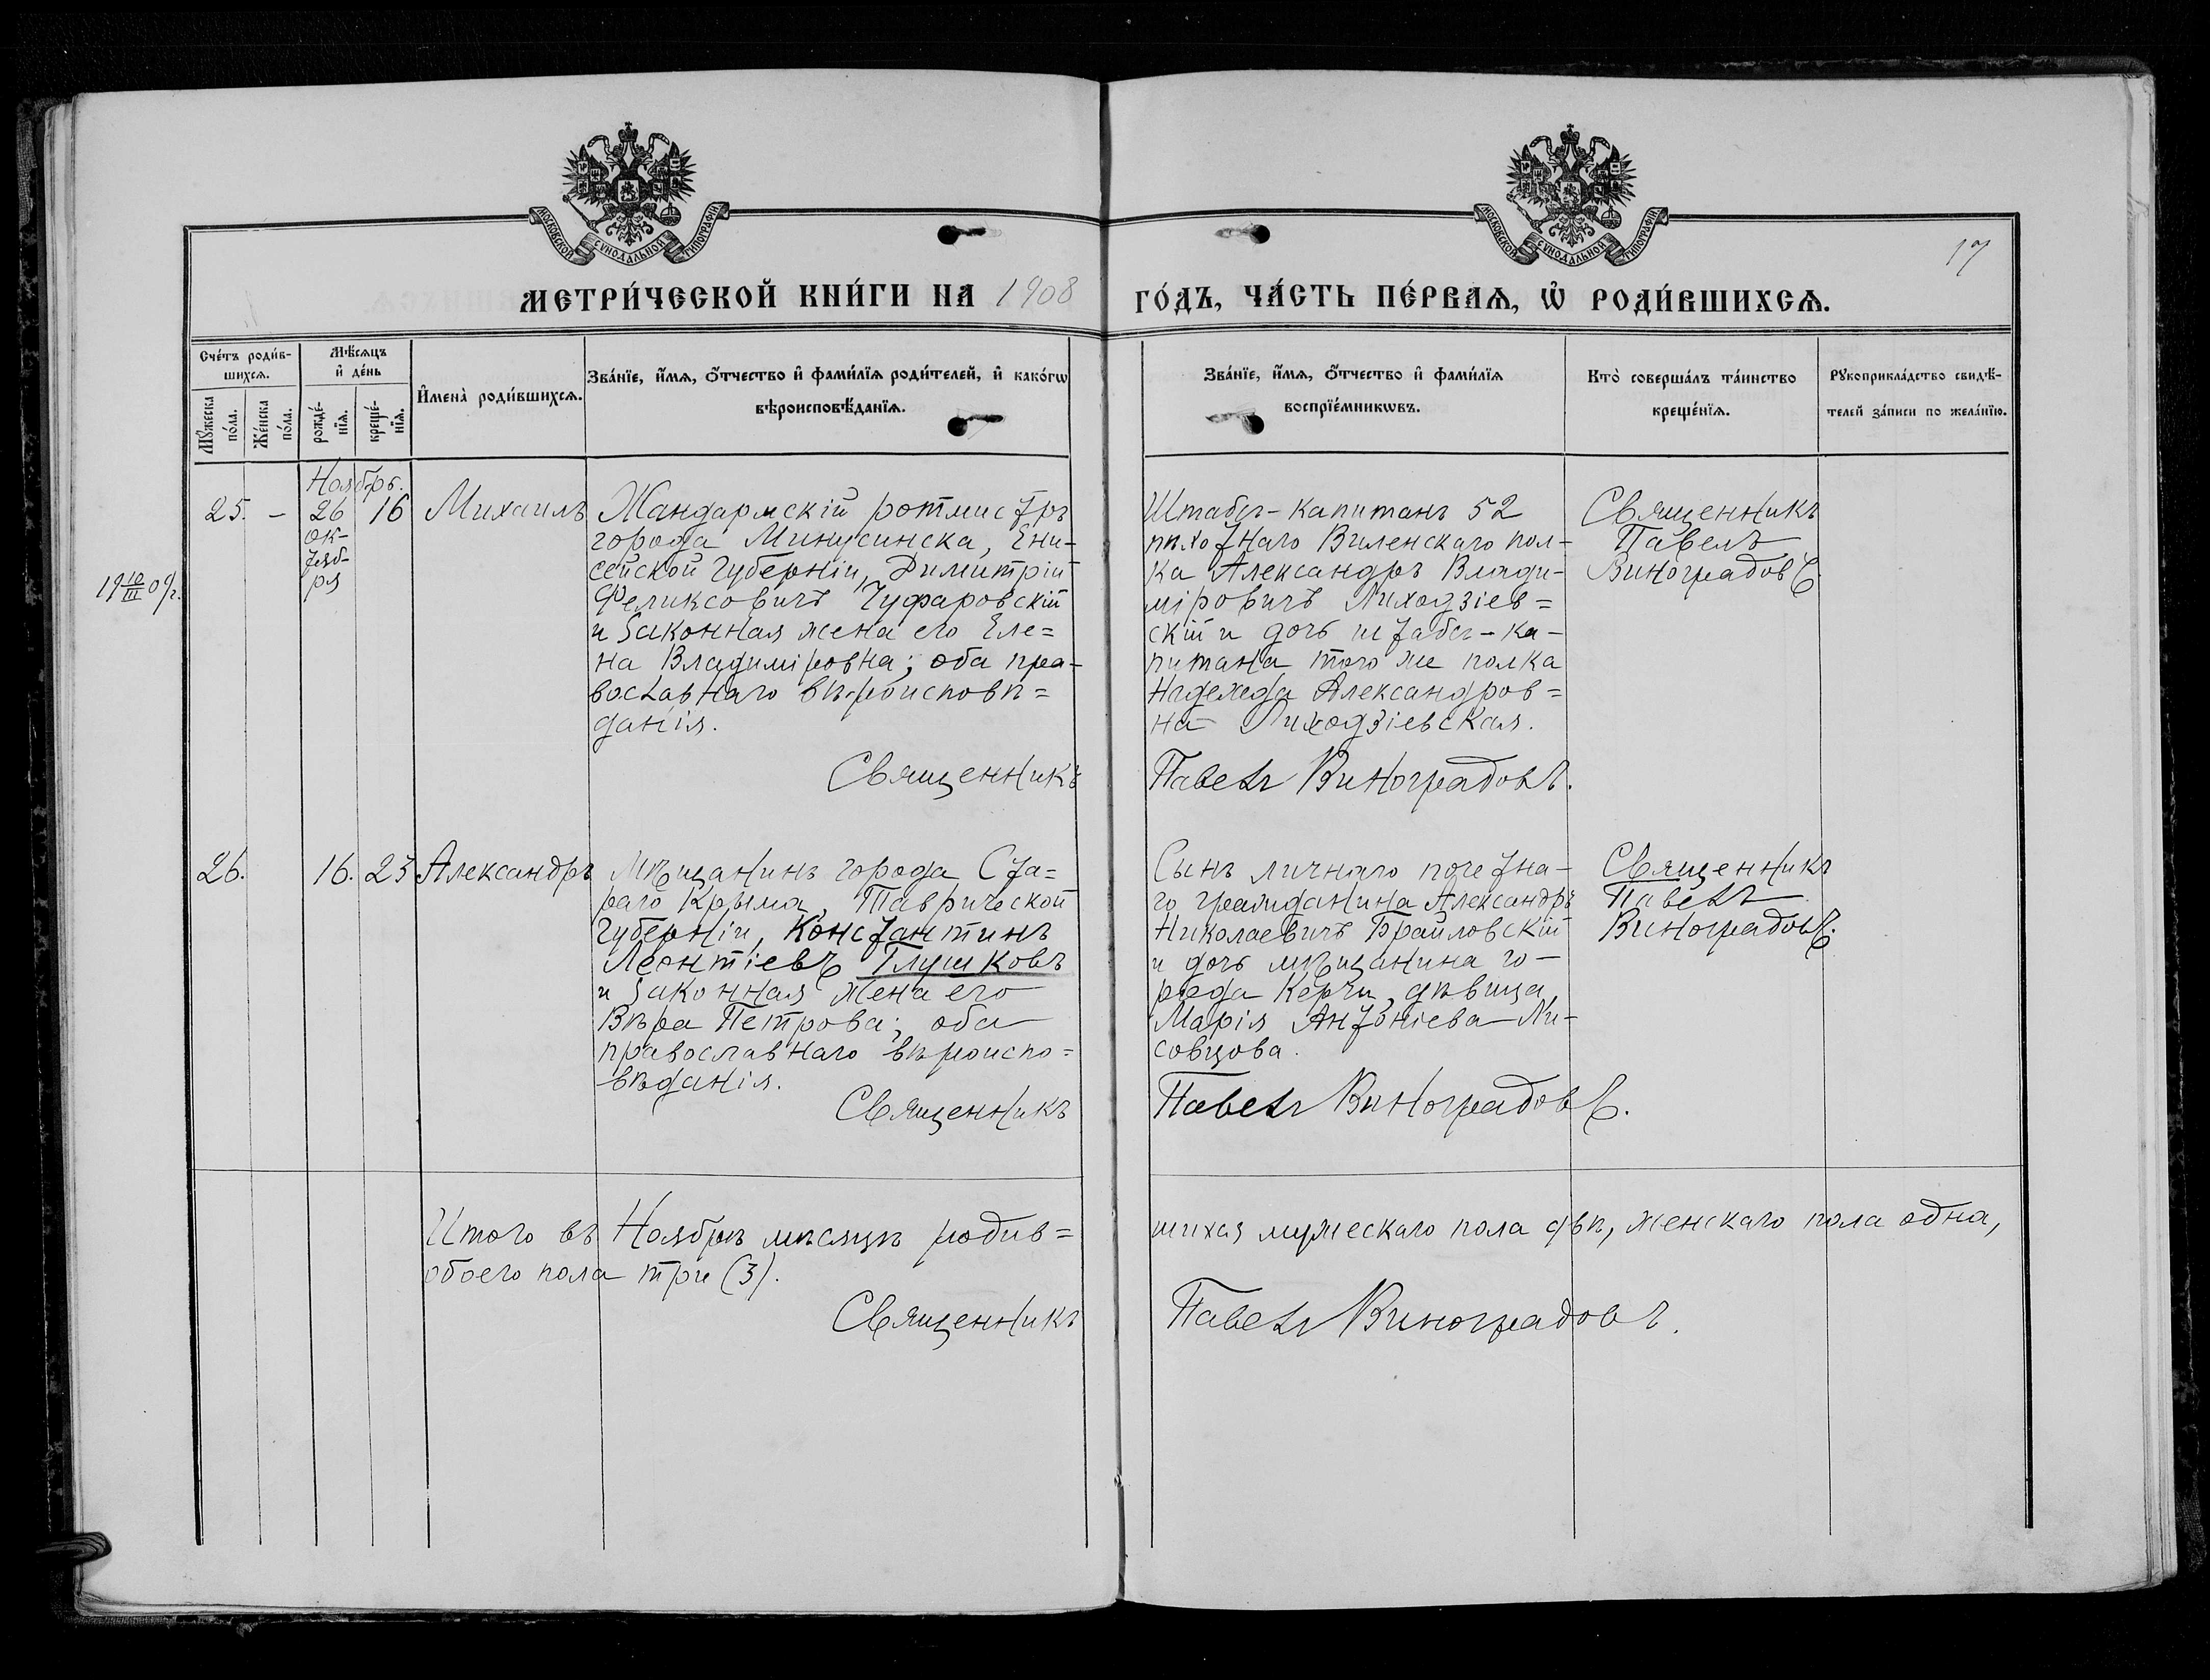 МОСКОВСКОЙ СУНОДАЛЬНОЙ ТИПОГРАФІИ
МОСКОВСКОЙ СУНОДАЛЬНОЙ ТИПОГРАФІИ
17
МЕТРИ́ЧЕСКОЙ КНИ́ГИ НА 1908
ГО́ДЪ, ЧА́СТЬ ПЕ́РВАѦ, Ѡ҆ РОДИ́ВШИХСѦ.
Сче́тъ роди́в-
шихсѧ.
Мѣ́сѧцъ
и҆ де́нь
Мꙋ́жеска
по́ла.
Же́нска
по́ла.
рожде́-
нїѧ.
креще́-
нїѧ.
И҆мена̀ роди́вшихсѧ.
Зва́нїе, и҆́мѧ, ѻ҆́тчество и҆ фами́лїѧ роди́телей, и҆ како́гѡ
вѣроисповѣ́данїѧ.
Зва́нїе, и҆́мѧ, ѻ҆́тчество и҆ фами́лїѧ
воспрїе́мникѡвъ.
Кто̀ соверша́лъ та́инство
креще́нїѧ.
Рꙋкоприкла́дство свидѣ́-
телей за́писи по жела́нїю.
Ноябрь.
25. – 26 16 Михаилъ
ок-
тяб-
ря
19 10/III 09 г.
Жандармскій ротмистръ
города Минусинска, Ени-
сейской губерніи, Димитрій
Феликсовичъ Чуфаровскій
и законная жена его Еле=
на Владиміровна; оба пра-
вославнаго вѣроисповѣ=
данія.
Священникъ
Штабсъ-капитанъ 52
пѣхотнаго Виленскаго пол-
ка Александръ Влади-
міровичъ Лиходзіев=
скій и дочь штабсъ-ка-
питана того же полка
Надежда Александров=
на Лиходзіевская.
Павелъ Виноградовъ.
Священникъ
Павелъ
Виноградовъ.
26. 16. 23 Александръ
Мѣщанинъ города Ста=
раго Крыма, Таврической
губерніи, Константинъ
Леонтіевъ Глушковъ
и законная жена его
Вѣра Петрова; оба
православнаго вѣроиспо=
вѣданія.
Священникъ
Сынъ личнаго почетна-
го гражданина Александръ
Николаевичъ Браиловскій
и дочь мѣщанина го-
рода Керчи, дѣвица
Марія Антоніева Ли-
совцова.
Павелъ Виноградовъ.
Священникъ
Павелъ
Виноградовъ.
Итого въ Ноябрѣ мѣсяцѣ родив=
шихся мужескаго пола двѣ, женскаго пола одна,
обоего пола три (3).
Священникъ
Павелъ Виноградовъ.